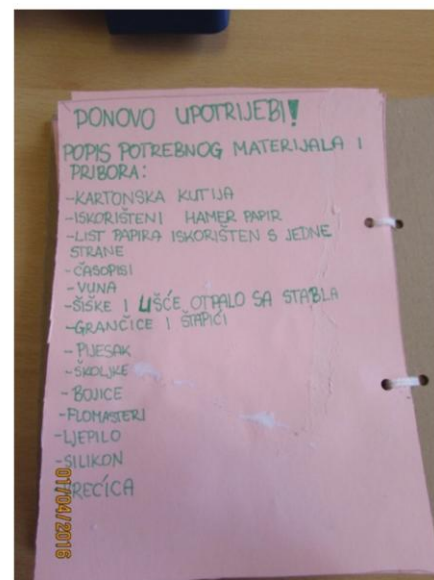 PONOVO UPOTRIJEBI!
POPIS POTREBNOG MATERIJALA I
PRIBORA:
-KARTONSKA KUTIJA
-ISKORIŠTENI HAMER PAPIR
-LIST PAPIRA ISKORIŠTEN S JEDNE
STRANE
-ČASOPISI
-VUNA
-ŠIŠKE I LIŠĆE OTPALO SA STABLA
-GRANČICE I ŠTAPIĆI
-PIJESAK
-ŠKOLJKE
-BOJICE
-FLOMASTERI
-LJEPILO
-SILIKON
VREĆICA
01/04/2016